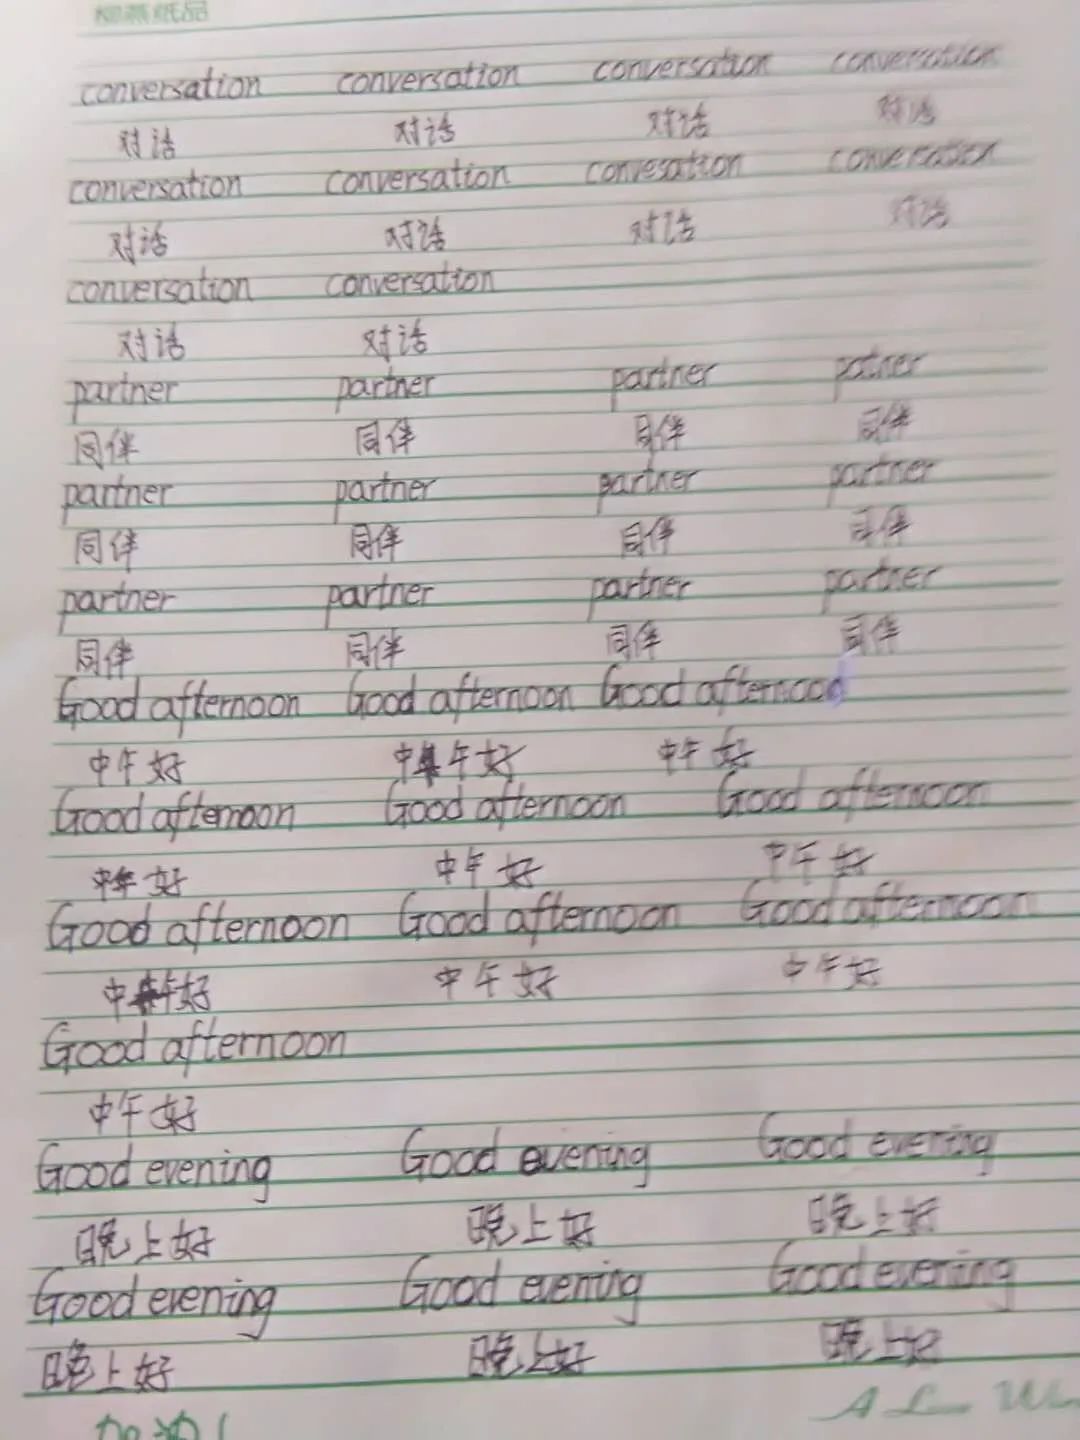 柳燕纸品
conversation conversation conversation conversation
对话 对话 对话 对话
conversation conversation convesation conversation
对话 对话 对话 对话
conversation conversation
对话 对话
partner partner partner patner
同伴 同伴 同伴 同伴
partner partner partner partner
同伴 同伴 同伴 同伴
partner partner partner partner
同伴 同伴 同伴 同伴
Good afternoon Good afternoon Good afternoon
中午好 中午好 中午好
Good afternoon Good afternoon Good afternoon
中午好 中午好 中午好
Good afternoon Good afternoon Good afternoon
中午好 中午好 中午好
Good afternoon
中午好
Good evening Good evening Good evening
晚上好 晚上好 晚上好
Good evening Good evening Good evening
晚上好 晚上好 晚上好
A